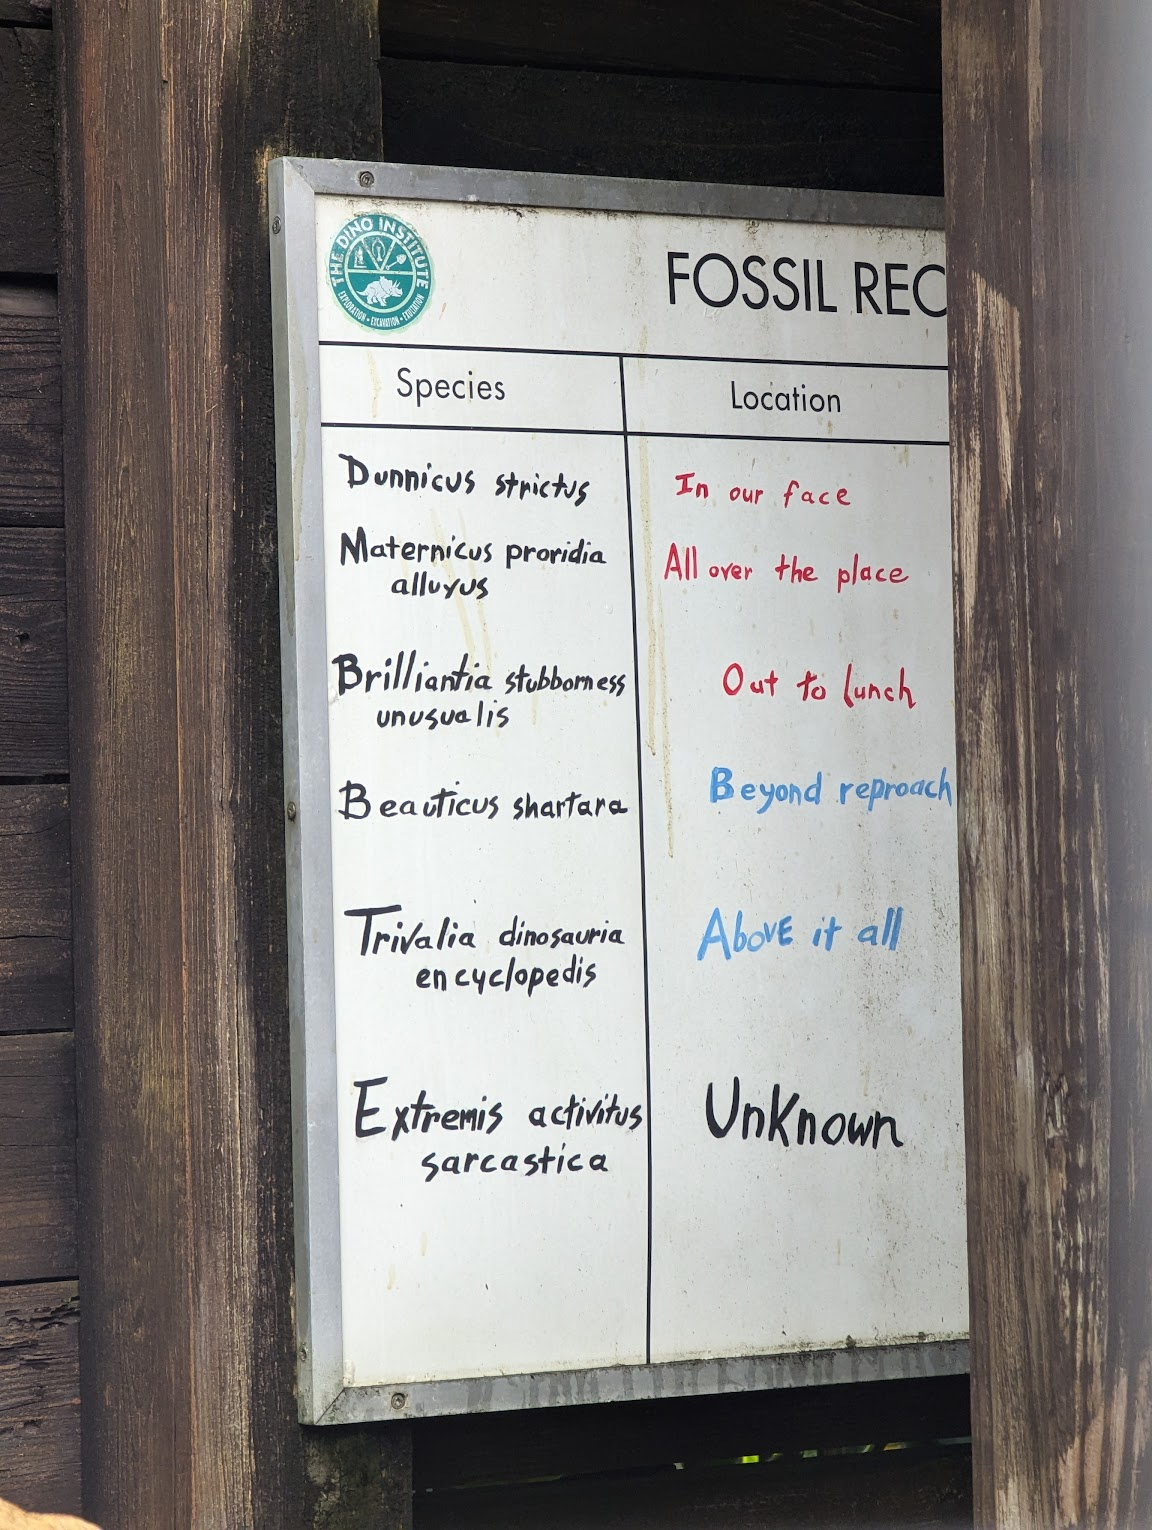 THE DINO INSTITUTE
EXPLORATION • EXCAVATION • EXULTATION
FOSSIL REC
Species Location
Dunnicus strictus In our face
Maternicus proridia All over the place
alluyus
Brilliantia stubborness Out to lunch
unusualis
Beauticus shartara Beyond reproach
Trivalia dinosauria Above it all
encyclopedis
Extremis activitus Unknown
sarcastica